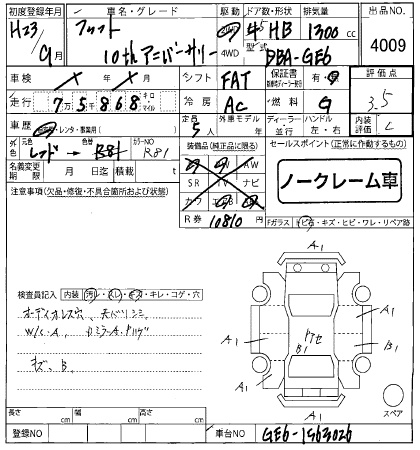 初度登録年月 車名・グレード 駆動 ドア数・形状 排気量 出品NO
H23 フィット 2WD 5 HB 1300 cc
9月 10thアニバーサリー 4WD 型式 DBA-GE6 4009
車検 月 シフト FAT 保証書 有・無 評価点
走行 7万5千868 キロ マイル 冷房 AC 燃料 G 3.5
車歴 自家用・レンタ・事業用 定員 5人 外車モデル ディーラー・並行 ハンドル 左・右 内装 C
外色 元色 レッド 色替 R81 カラーNO R81 装備品(純正品に限る) セールスポイント(正常に作動するもの)
名義変更期限 月 日迄 積載 t SR TV ナビ
注意事項(欠品・修復・不具合箇所および状態) カワ
R券 10810円 ノークレーム車
Fガラス トビ石・キズ・ヒビ・ワレ・リペア跡
検査員記入 内装 汚レ・スレ・キズ・キレ・コゲ・穴
オーディオレス穴、天バリシミ
W/C・A
キズ、B
A1
A1 A1
トケセ
B1
A1 B1
A1
A1
スペア
長さ cm 幅 cm 高さ cm
登録NO 車台NO GE6-1563026